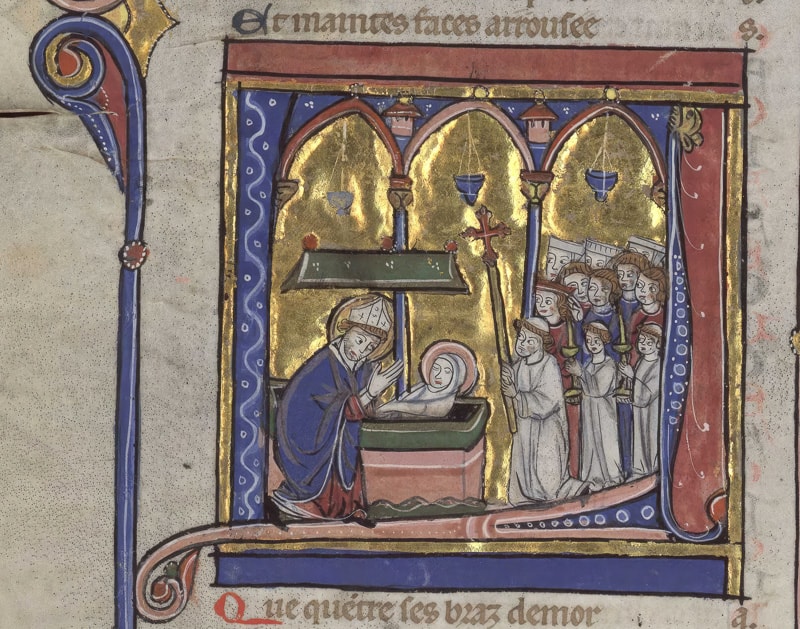 Et maintes faces arrousee
s.
Que quētre ses braz demor
a.